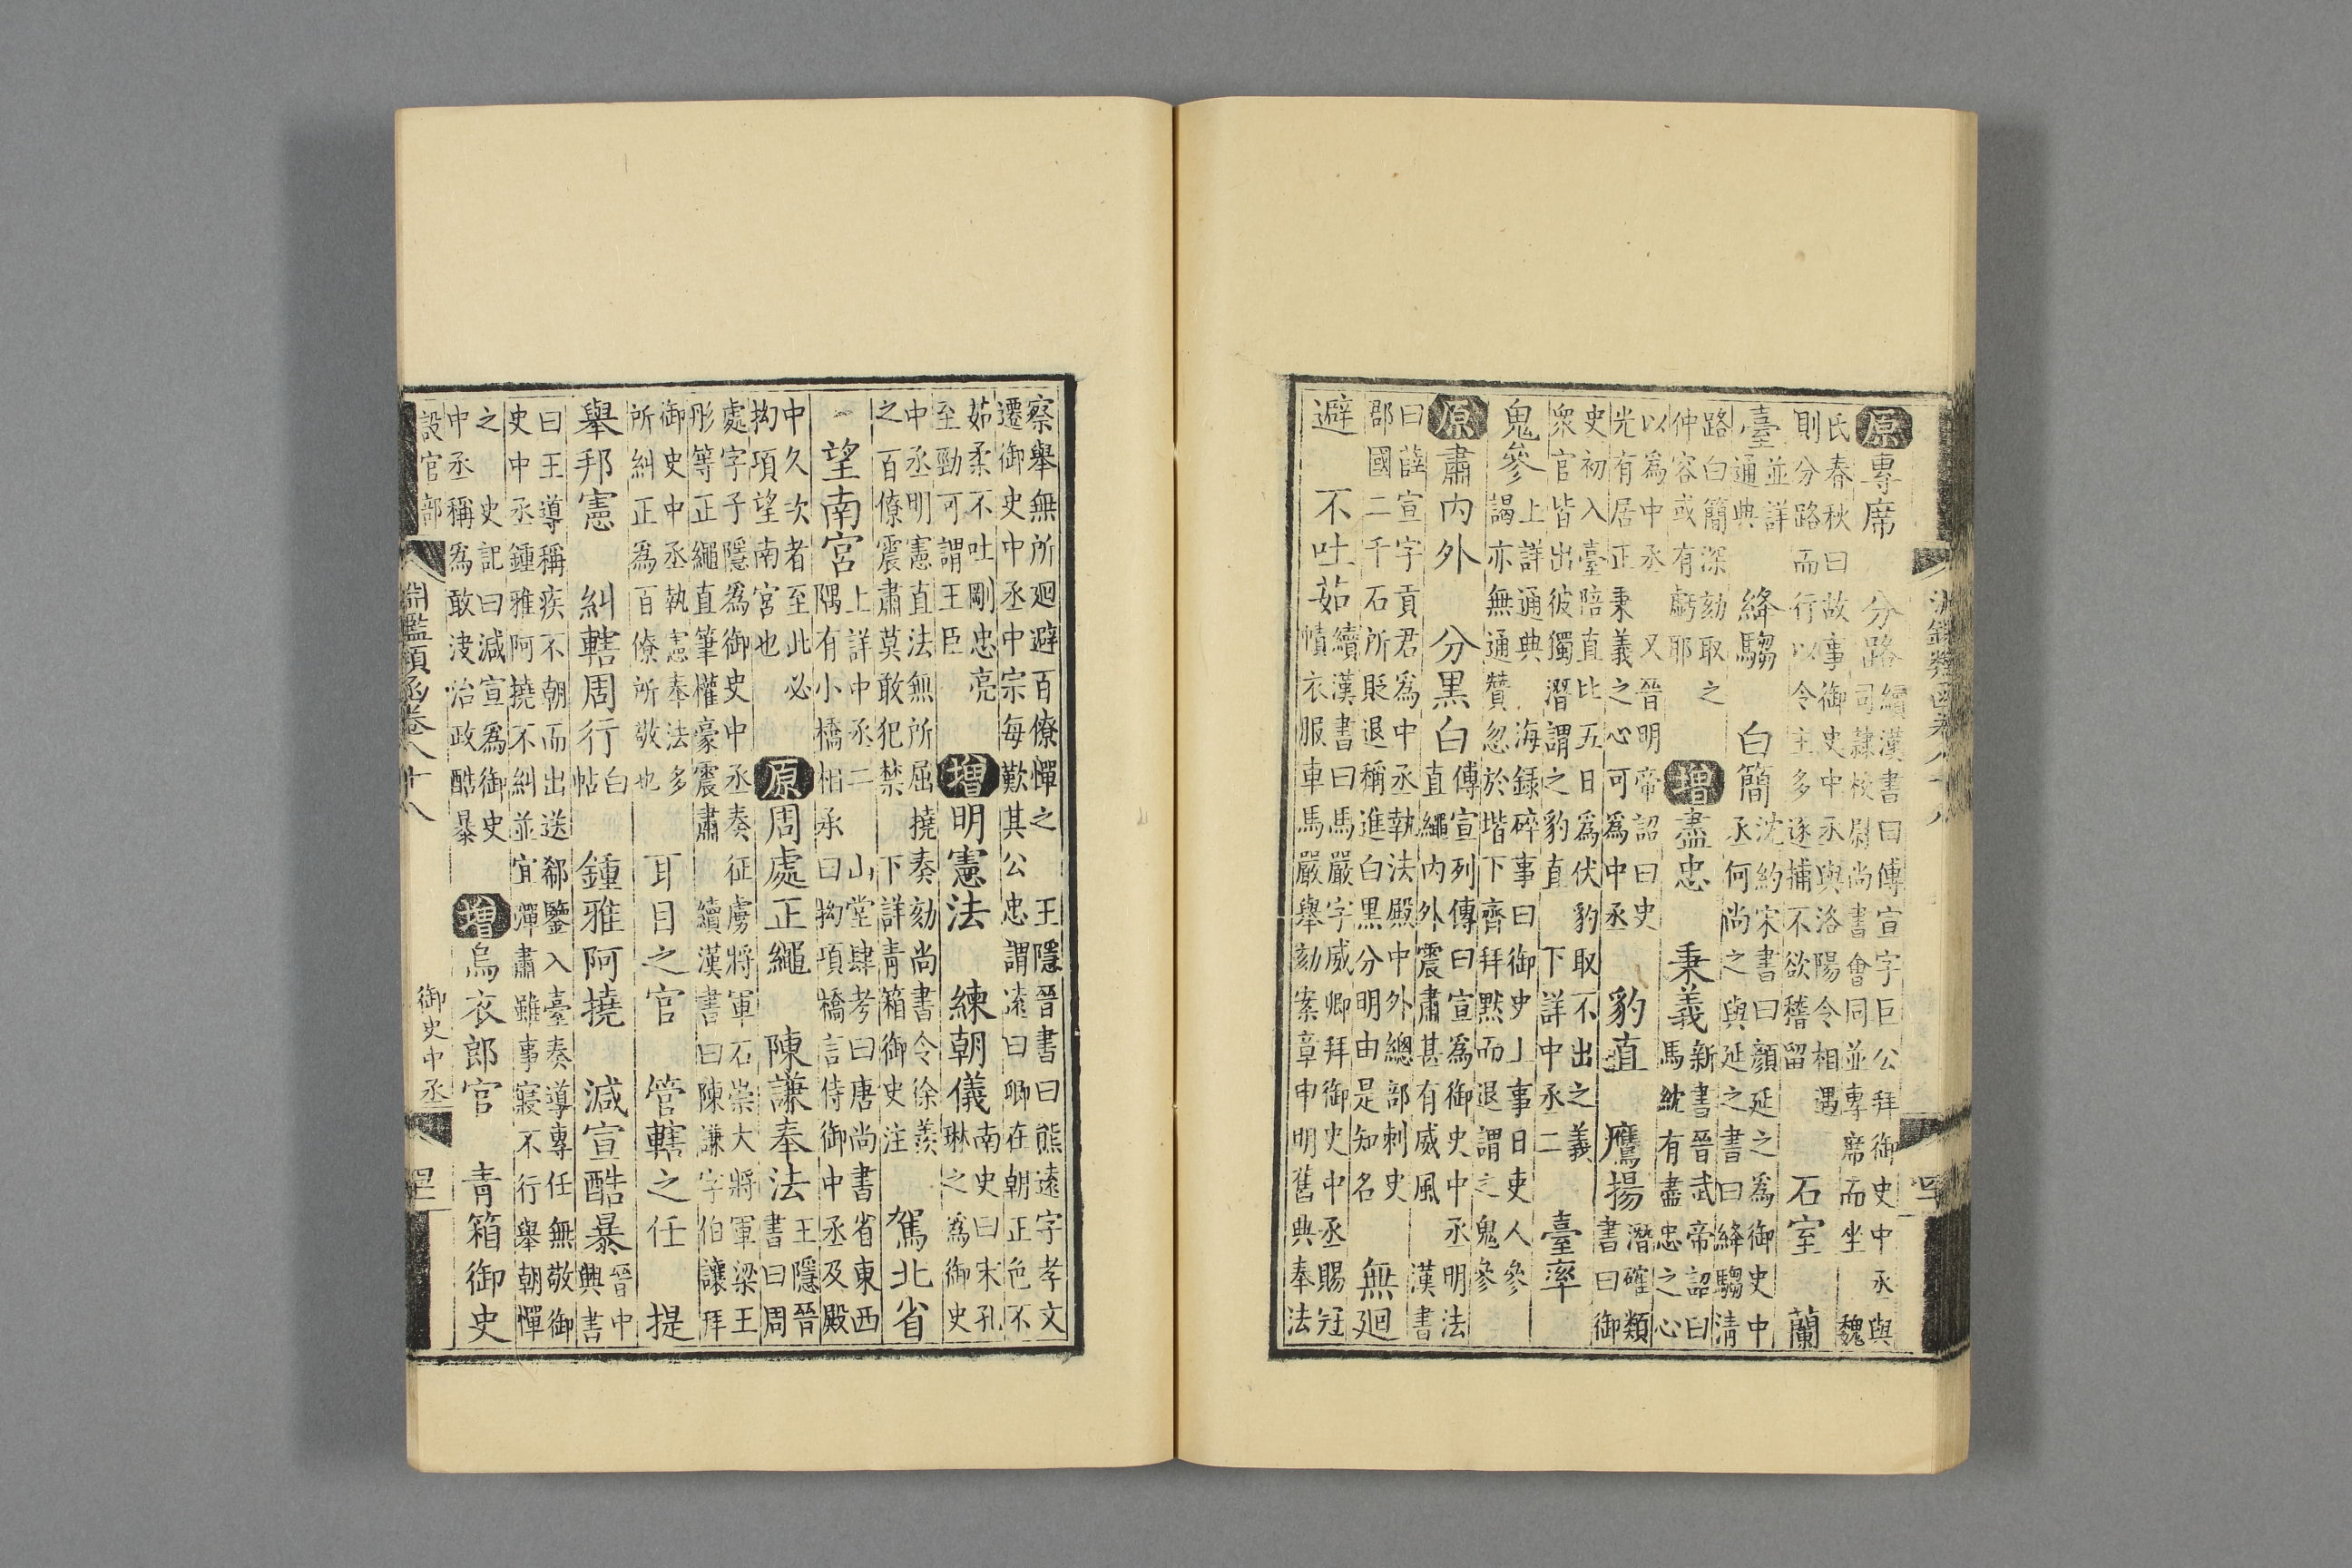 淵鑑類函卷八十八
原專席 分路 續漢書曰傅宣字巨公拜御史中丞與
司隸校尉尚書會同並專席而坐 魏
氏春秋曰故事御史中丞與洛陽令相遇
則分路而行以令主多逐捕不欲稽留 石室 蘭
臺 並詳
通典 絳騶 白簡 沈約宋書曰顔延之爲御史中
丞何尚之與延之書曰絳騶清
路白簡深劾取之
仲容或有虧耶 增盡忠 秉義 新書晉武帝詔曰
馬紞有盡忠之心
以爲中丞 又晉明帝詔曰史
光有居正秉義之心可爲中丞 豹直 鷹揚 潛確類
書曰御
史初入臺陪直比五日爲伏豹取不出之義
衆官皆出彼獨潛謂之豹直 下詳中丞二 臺率
鬼參 上詳通典 海録碎事曰御史上事日吏人參
謁亦無通贊忽於堦下齊拜默而退謂之鬼參
原肅内外 分黒白 傳宣列傳曰宣爲御史中丞明法
直繩内外震肅甚有威風 漢書
曰薛宣字貢君爲中丞執法殿中外總部刺史
郡國二千石所貶退稱進白黑分明由是知名 無廻
避 不吐茹 續漢書曰馬嚴字威卿拜御史中丞賜冠
幘衣服車馬嚴舉劾案章申明舊典奉法
察舉無所廻避百僚憚之 王隱晉書曰熊遠字孝文
遷御史中丞中宗每歎其公忠謂遠曰卿在朝正色不
茹柔不吐剛忠亮
至勁可謂王臣 增明憲法 練朝儀 南史曰宋孔
琳之爲御史
中丞明憲直法無所屈撓奏劾尚書令徐羨
之百僚震肅莫敢犯禁 下詳青箱御史注 駕北省
望南宮 上詳中丞二 山堂肆考曰唐尚書省東西
隅有小橋相承曰拗項橋言侍御中丞及殿
中久次者至此必
拗項望南宮也 原周處正繩 陳謙奉法 王隱晉
書曰周
處字子隱爲御史中丞奏征虜將軍石崇大將軍梁王
彤等正繩直筆權豪震肅 續漢書曰陳謙字伯讓拜
御史中丞執憲奉法多
所糾正爲百僚所敬也 耳目之官 管轄之任 提
舉邦憲 糾轄周行 白
帖 鍾雅阿撓 減宣酷暴 晉中
興書
曰王導稱疾不朝而出送郗鑒入臺奏導專任無敬御
史中丞鍾雅阿撓不糾並宜彈肅雖事寢不行舉朝憚
之 史記曰減宣爲御史
中丞稱爲敢決治政酷暴 增烏衣郎官 青箱御史
設官部 淵鑑類函卷八十八 御史中丞